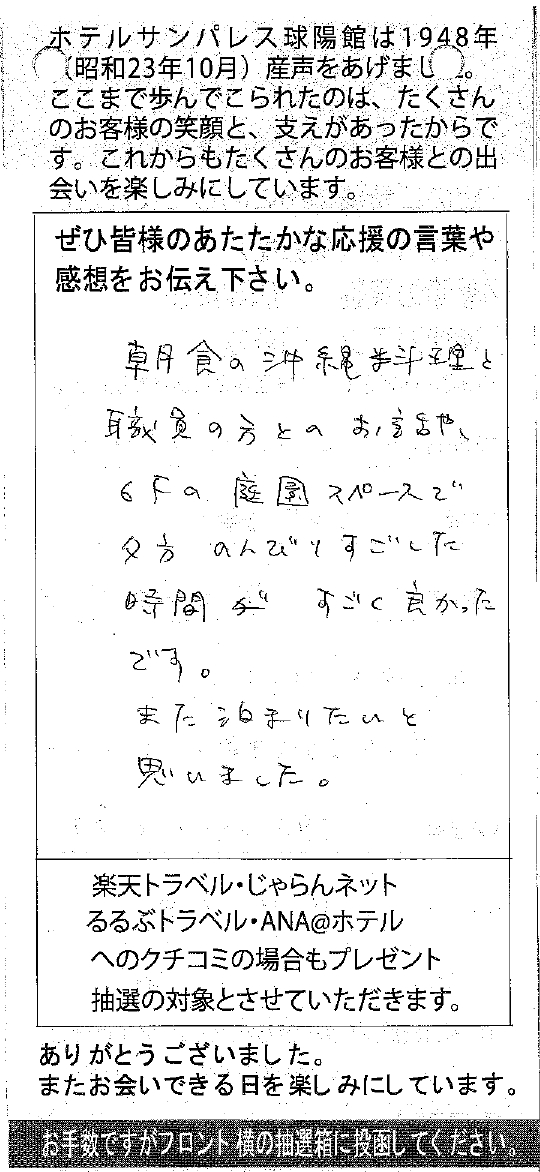 ホテルサンパレス球陽館は1948年
（昭和23年10月）産声をあげまし。
ここまで歩んでこられたのは、たくさん
のお客様の笑顔と、支えがあったからで
す。これからもたくさんのお客様との出
会いを楽しみにしています。
ぜひ皆様のあたたかな応援の言葉や
感想をお伝え下さい。
朝食の沖縄料理と
職員の方とのお話や、
6Fの庭園スペースで
夕方のんびりすごした
時間が すごく良かった
です。
また泊まりたいと
思いました。
楽天トラベル・じゃらんネット
るるぶトラベル・ANA@ホテル
へのクチコミの場合もプレゼント
抽選の対象とさせていただきます。
ありがとうございました。
またお会いできる日を楽しみにしています。
お手数ですがフロント横の抽選箱に投函してください。